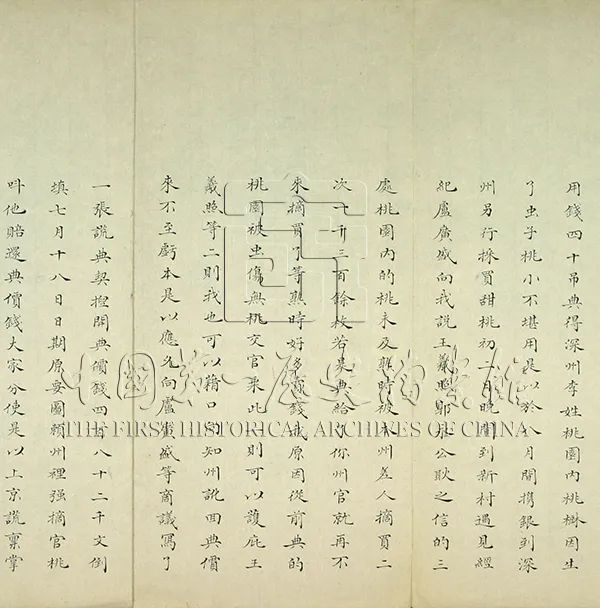 用錢四十吊典得深州李姓桃園內桃樹因生
了虫子桃小不堪用是以於八月間携銀到深
州另行採買甜桃初二日晚間到新村遇見經
紀盧廣盛向我說王羲照鄭公耿之信的三
處桃園內的桃未及熟時被本州差人摘買二
次一千三百餘枚若果典給了你州官就再不
來摘買了等熟時好多賣錢我原因從前典的
桃園被虫傷無桃交官来此一則可以護庇王
羲照等二則我也可以藉口向知州訛回典價
來不至虧本是以應允向盧廣盛等商議寫了
一張謊典契捏開典價錢四百八十二千文倒
填七月十八日日期原要圖賴州裡强摘官桃
呌他賠還典價錢大家分使是以上京謊稟掌
中国第一历史档案馆
THE FIRST HISTORICAL ARCHIVES OF CHINA